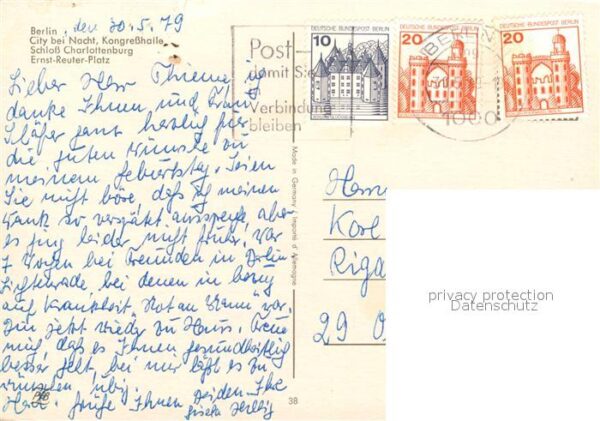 Berlin, den 30.5.79
City bei Nacht, Kongreßhalle,
Schloß Charlottenburg
Ernst-Reuter-Platz
Lieber Herr Thieme, ich
danke Ihnen, und Frau
Schäfer ganz herzlich für
die guten Wünsche zu
meinem Geburtstag. Seien
Sie nicht böse, daß ich meinen
Dank so verspätet ausspreche, aber
es ging leider nicht früher. War
7 Wochen bei Freunden in Berlin
Lichtenrade, bei denen in bezug
auf Krankheit "Not am Mann" war.
Bin jetzt wieder zu Haus. Freue
mich, daß es Ihnen gesundheitlich
besser geht, bei mir läßt es zu
wünschen übrig.
Herzl. Grüße Ihnen beiden Ihre
Gisela
PHB
Made in Germany Imprimé d'Allemagne
38
Post
damit Sie
Verbindung
bleiben
DEUTSCHE BUNDESPOST BERLIN
10
DEUTSCHE BUNDESPOST BERLIN
20
DEUTSCHE BUNDESPOST BERLIN
20
BERLIN
1000
Herrn
Karl
Riga
29 O
privacy protection
Datenschutz